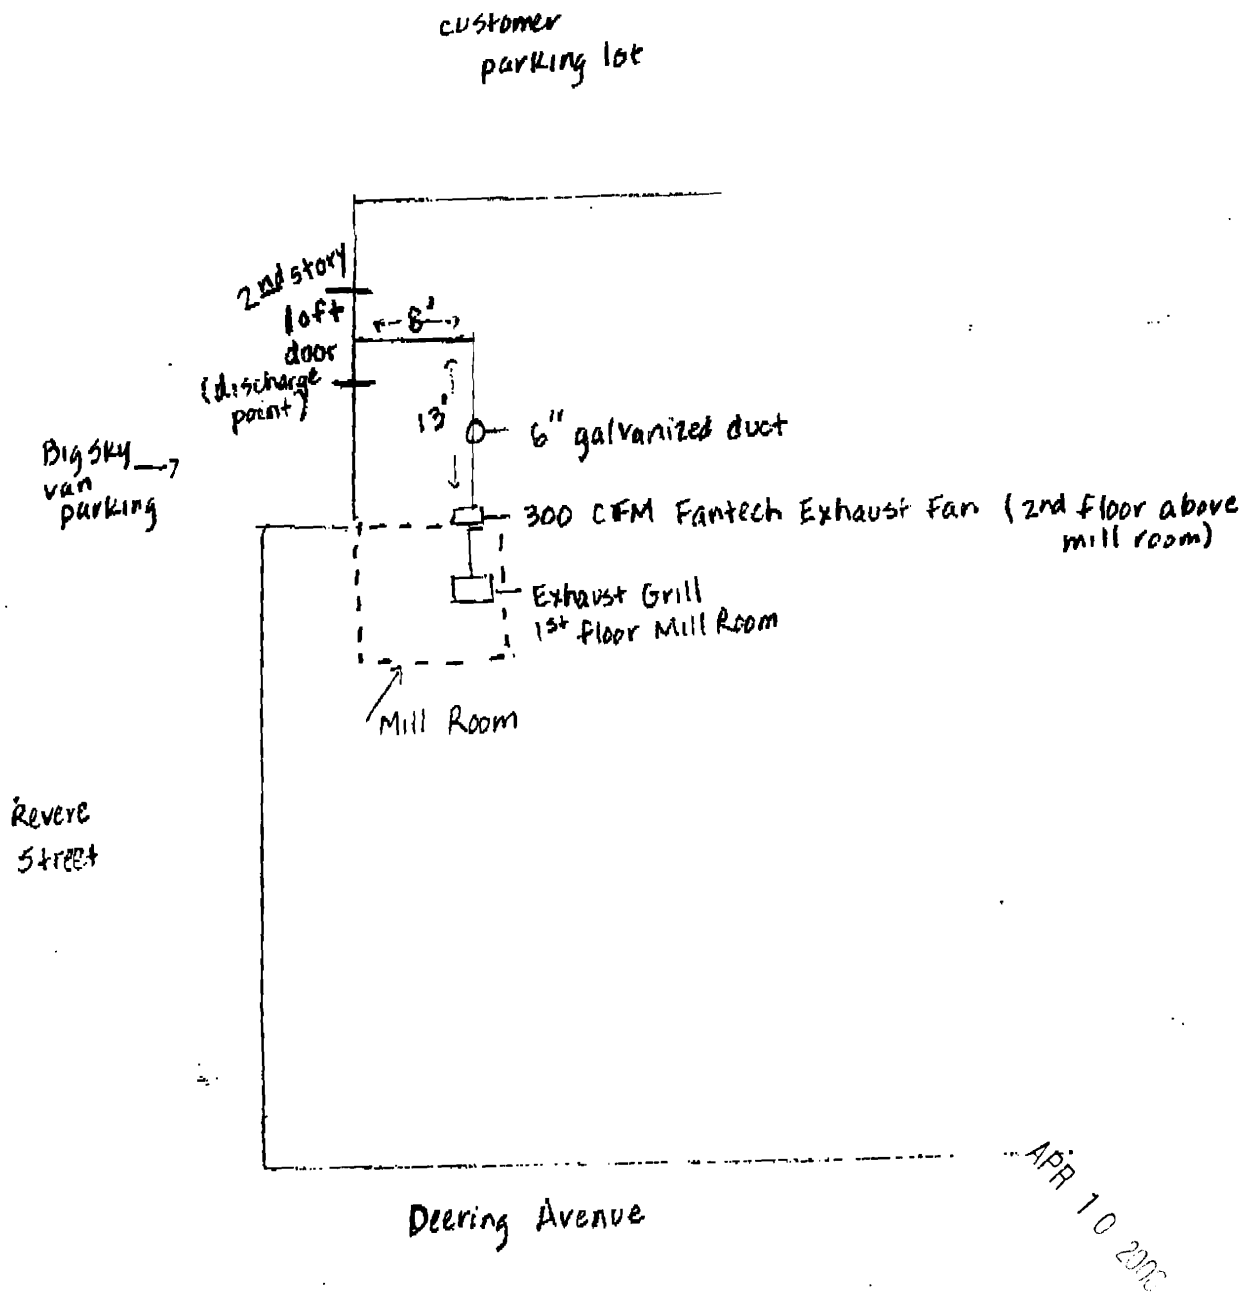 customer
parking lot
2nd story
loft
door
(discharge
point)
8'
13'
6" galvanized duct
Big Sky
van
parking
300 CFM Fantech Exhaust Fan (2nd floor above
mill room)
Exhaust Grill
1st floor Mill Room
Mill Room
Revere
Street
Deering Avenue
APR 10